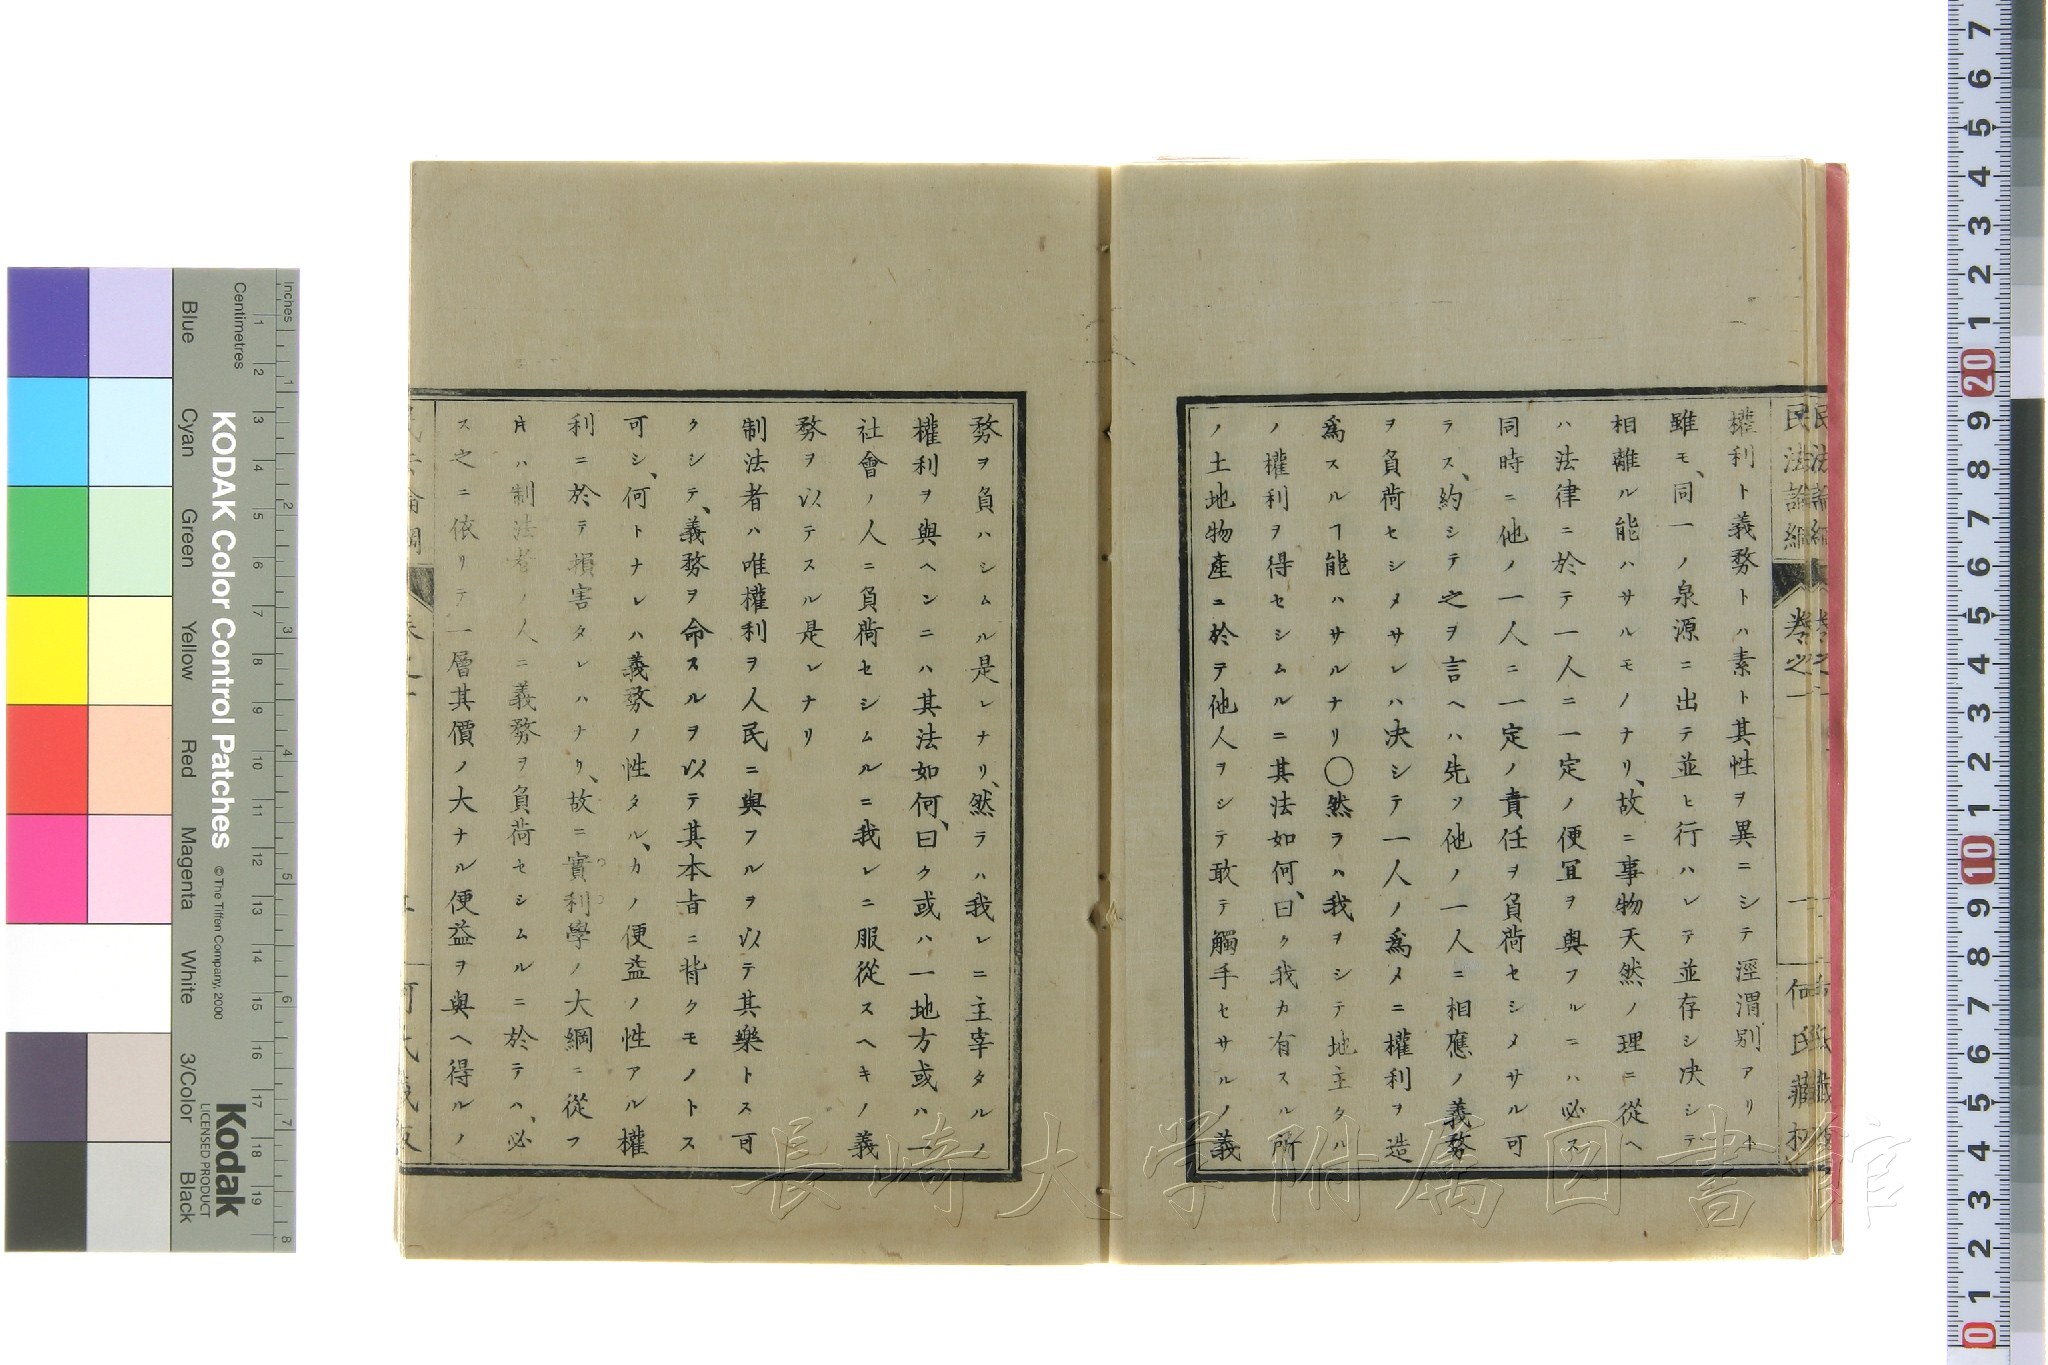 民法論綱 卷之一 一 何氏藏板
權利ト義務トハ素ト其性ヲ異ニシテ涇渭別アリト
雖モ、同一ノ泉源ニ出テ並ヒ行ハレテ並存シ决シテ
相離ル能ハサルモノナリ、故ニ事物天然ノ理ニ從ヘ
ハ法律ニ於テ一人ニ一定ノ便冝ヲ與フルニハ必ス
同時ニ他ノ一人ニ一定ノ責任ヲ負荷セシメサル可
ラス、約シテ之ヲ言ヘハ先ツ他ノ一人ニ相應ノ義務
ヲ負荷セシメサレハ决シテ一人ノ爲メニ權利ヲ造
爲スルヿ能ハサルナリ〇然ラハ我ヲシテ地主タル
ノ權利ヲ得セシムルニ其法如何、曰ク我カ有スル所
ノ土地物產ニ於テ他人ヲシテ敢テ觸手セサルノ義
務ヲ負ハシムル是レナリ、然ラハ我レニ主宰タルノ
權利ヲ與ヘンニハ其法如何、曰ク或ハ一地方或ハ一
社會ノ人ニ負荷セシムルニ我レニ服從スヘキノ義
務ヲ以テスル是レナリ
制法者ハ唯權利ヲ人民ニ與フルヲ以テ其樂トス可
クシテ、義務ヲ命スルヲ以テ其本旨ニ背クモノトス
可シ、何トナレハ義務ノ性タル、カノ便益ノ性アル權
利ニ於テ損害タレハナリ、故ニ實利學ノ大綱ニ從フ
片ハ制法者ノ人ニ義務ヲ負荷セシムルニ於テハ、必
ス之ニ依リテ一層其價ノ大ナル便益ヲ與ヘ得ルノ
Blue
Cyan
Green
Yellow
Red
Magenta
White
3/Color
Black
Inches
Centimetres
KODAK Color Control Patches
© The Tiffen Company, 2000
Kodak
LICENSED PRODUCT
長崎大学附属図書館